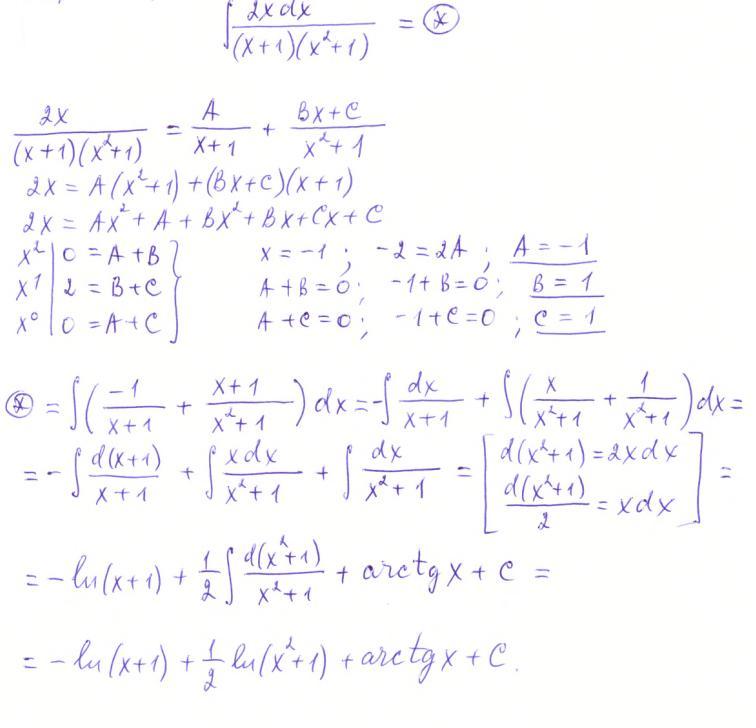 ∫ 2x dx / ((x+1)(x²+1)) = ⊛
2x / ((x+1)(x²+1)) = A / (x+1) + (Bx+C) / (x²+1)
2x = A(x²+1) + (Bx+C)(x+1)
2x = Ax² + A + Bx² + Bx + Cx + C
x² | 0 = A+B } x = -1 ; -2 = 2A ; A = -1
x¹ | 2 = B+C } A+B=0 ; -1+B=0 ; B = 1
x⁰ | 0 = A+C } A+C=0 ; -1+C=0 ; C = 1
⊛ = ∫( -1 / (x+1) + (x+1) / (x²+1) ) dx = -∫ dx / (x+1) + ∫( x / (x²+1) + 1 / (x²+1) ) dx =
= - ∫ d(x+1) / (x+1) + ∫ x dx / (x²+1) + ∫ dx / (x²+1) = [ d(x²+1) = 2x dx ; d(x²+1) / 2 = x dx ] =
= -ln(x+1) + 1/2 ∫ d(x²+1) / (x²+1) + arctg x + C =
= -ln(x+1) + 1/2 ln(x²+1) + arctg x + C.